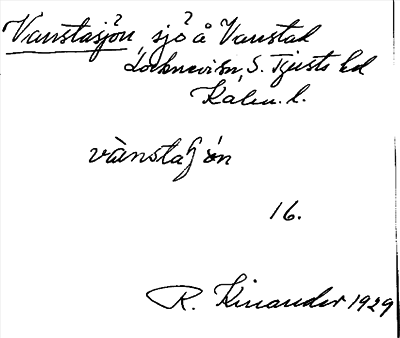 Vanstasjön, sjö å Vanstad
Locknevi sn, S. Tjusts hd
Kalm. l.
vànstaʃön
16.
R. Kinander 1929